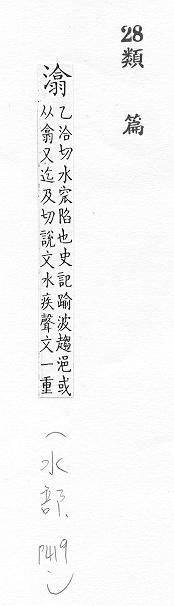 28
類篇
潝
乙洽切水窊陷也史記踰波趨浥或
从翕又迄及切說文水疾聲文一重
(水部、P419)